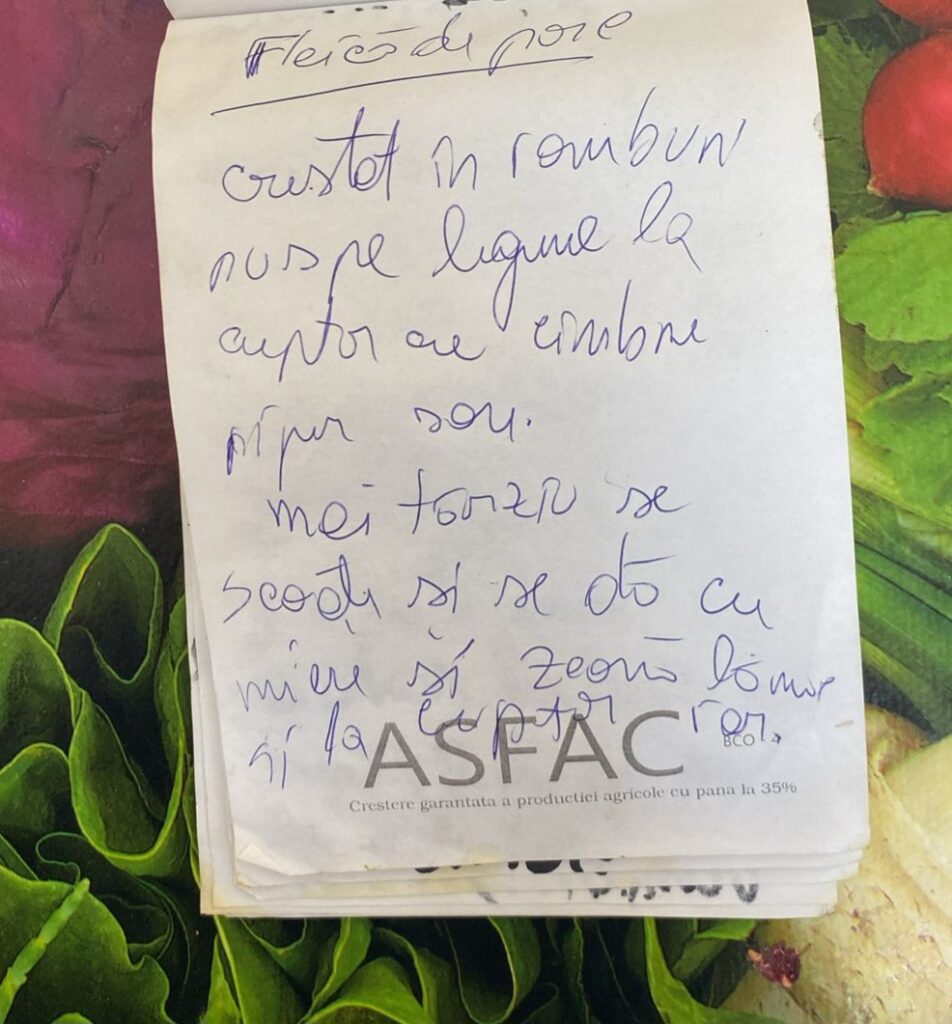 Fleică de porc
crestat în romburi
pus pe legume la
cuptor cu cimbru
piper sare.
mai târziu se
scoate si se dă cu
miere și zeamă lămâie
si la cuptor iar.
ASFAC
BCO
Crestere garantata a productiei agricole cu pana la 35%